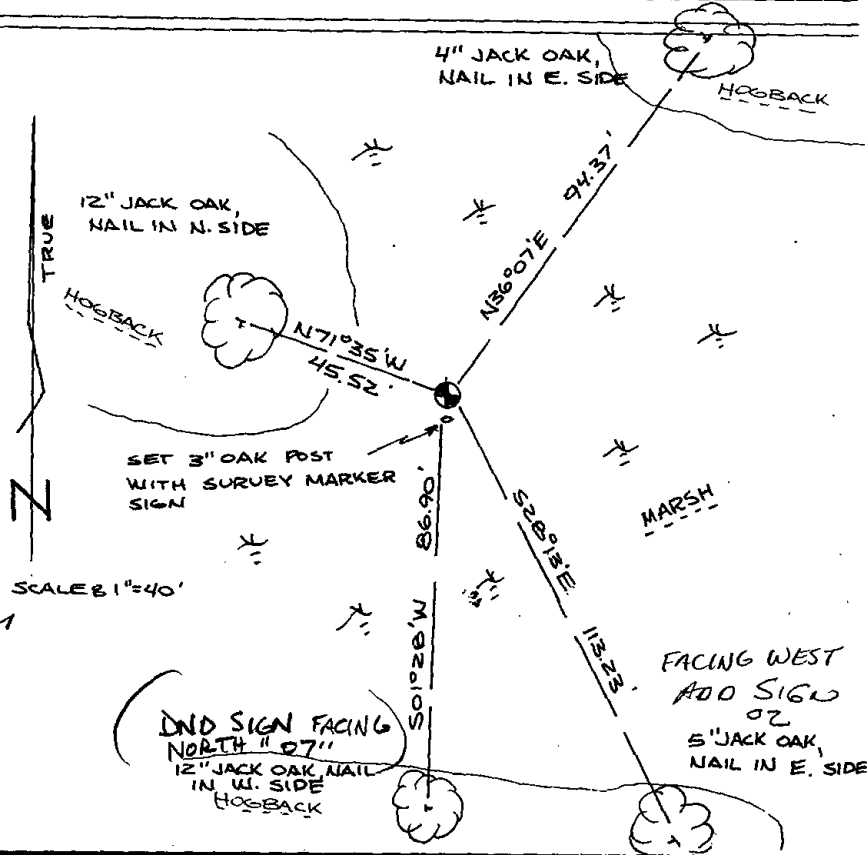 4" JACK OAK,
NAIL IN E. SIDE
HOGBACK
12" JACK OAK,
NAIL IN N. SIDE
TRUE
HOGBACK
94.37'
N36°07'E
N71°35'W
45.52'
SET 3" OAK POST
WITH SURVEY MARKER
SIGN
N
86.90'
S01°28'W
S28°13'E
113.23'
MARSH
SCALE: 1"=40'
FACING WEST
ADD SIGN
02
5" JACK OAK,
NAIL IN E. SIDE
DND SIGN FACING
NORTH "07"
12" JACK OAK, NAIL
IN W. SIDE
HOGBACK